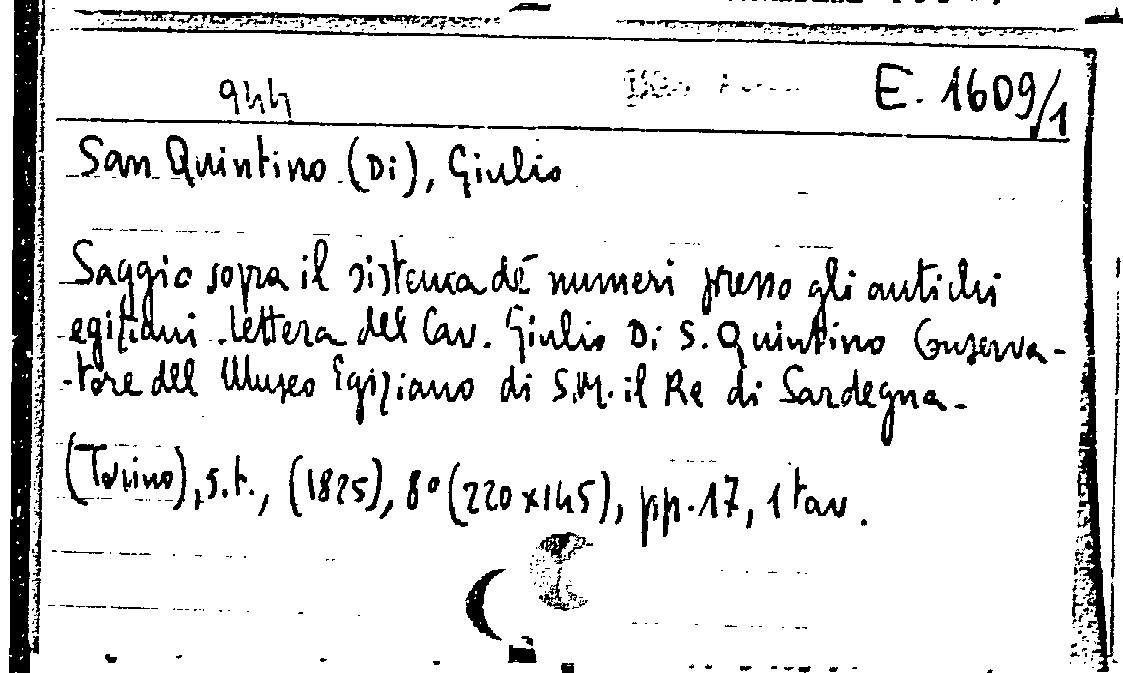 944 E. 1609/1
San Quintino (Di), Giulio
Saggio sopra il sistema de' numeri presso gli antichi
egiziani. Lettera del Cav. Giulio Di S. Quintino Conserva-
-tore del Museo Egiziano di S.M. il Re di Sardegna.
(Torino), s.t., (1825), 8° (220x145), pp. 17, 1 tav.